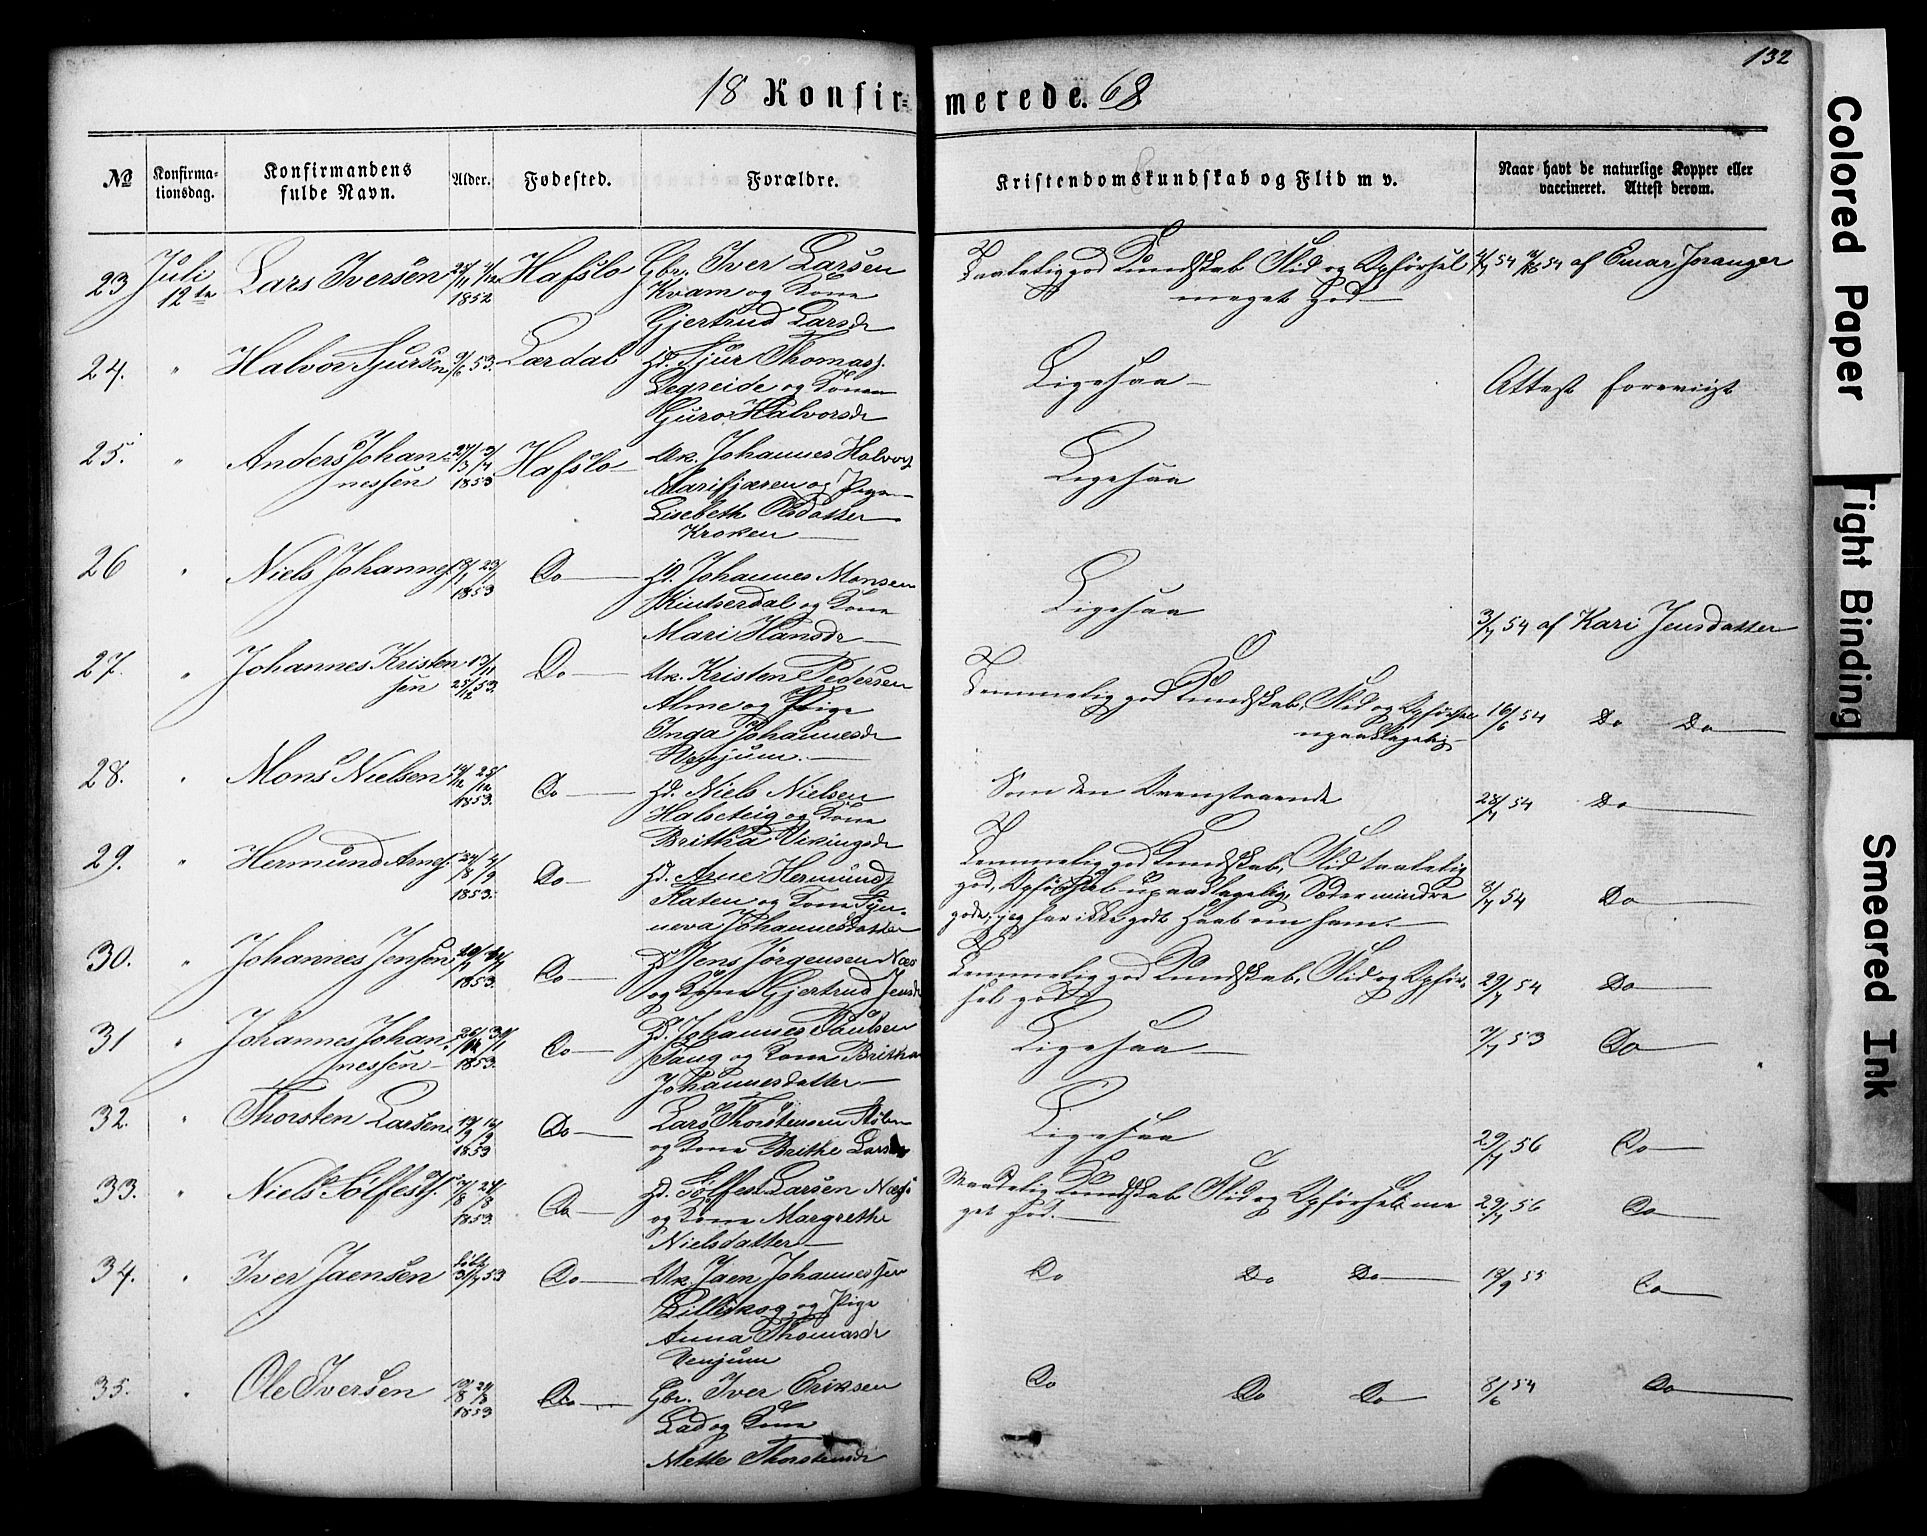 132
18 Konfirmerede. 68
№ Konfirmationsdag. Konfirmandens fulde Navn. Alder. Fødested. Forældre. Kristendomskundskab og Flid m v. Naar havt de naturlige Kopper eller vaccineret. Attest derom.
23 Juli 12te Lars Iversen 1852 Hafslo Gbr. Iver Larsen
Kvam og Kone
Gjertrud Larsdr
Taalelig god Kundskab Flid og Opførsel
meget god
54 af Einar Joranger
24. " Halvor Sjursen 53. Lærdal Hd. Sjur Thomas.
Legreide og Konen
Guro Halvorsdr
Ligesaa
Attest foreviist
25. " Anders Johan
nessen 1853 Hafslo Uk. Johannes Halvors.
Marifjæren og Pige
Lisebeth Olsdatter
Kroken
Ligesaa
26 " Niels Johannes. 23/1 1853 Do Hd. Johannes Monsen
Kinserdal og Kone
Mari Hansdr
Ligesaa
3/7 54 af Kari Jensdatter
27. " Johannes Kristen
sen 13/11 25/12 53. Do Uk. Kristen Pedersen
Alme og Pige
Inga Johannesdr
Temmelig god Kundskab, Flid og Opførsel
upaaklagelig
16/6 54 Do Do
28. " Mons Nielsen 25/12 1853. Do Hd. Niels Nielsen
Halsteig og Kone
Britha Vikingsdr
Som den Ovenstaaende
28/7 54 Do
29. " Hermund Arnes. 1853. Do Hd. Arne Hermunds.
Flaten og Kone Syn-
neva Johannesdatter
Temmelig god Kundskab, Flid taalelig
god, Opførsel upaaklagelig, Sæder mindre
gode; jeg har ikke godt Haab om ham.
54 Do
30. " Johannes Jensen 1853. Do Hd. Jens Jørgensen Næs
og Kone Gjertrud Jensdr
Temmelig god Kundskab, Flid og Opfør-
sel god
29/7 54 Do
31 " Johannes Johan
nessen 1853. Do Hd. Johannes Paulsen
Taug og Kone Britha
Johannesdatter
Ligesaa
53 Do
32. " Thorsten Larsen 1853 Do Lars Thorstensen
og Kone Brithe
Ligesaa
29/7 56 Do
33. " Niels Sølfests. 1853. Do Hd. Sølfest Larsen Næss
og Kone Margrethe
Nielsdatter
Maadelig Kundskab Flid og Opførsel me
get god.
29/7 56 Do
34. " Iver Jaensen døbt 31/7 53 Do Uk. Jaen Johannessen
Billiskog og Pige
Anna Thomasdr
Venjum
Do Do Do
18/9 55 Do
35. " Ole Iversen 1853 Do Gbr. Iver Eriksen
Lad og Kone
Mette Thorstensdr
Do Do Do
8/6 54 Do
Colored Paper
Tight Binding
Smeared Ink